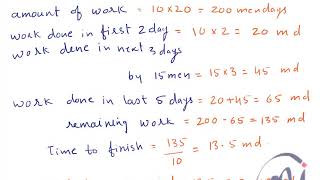 amount of work = 10×20 = 200 mendays
work done in first 2 day = 10×2 = 20 md
work done in next 3 days
by 15 men = 15×3 = 45 md
work done in last 5 days = 20+45 = 65 md
remaining work = 200-65 = 135 md
Time to finish = 135/10 = 13.5 md